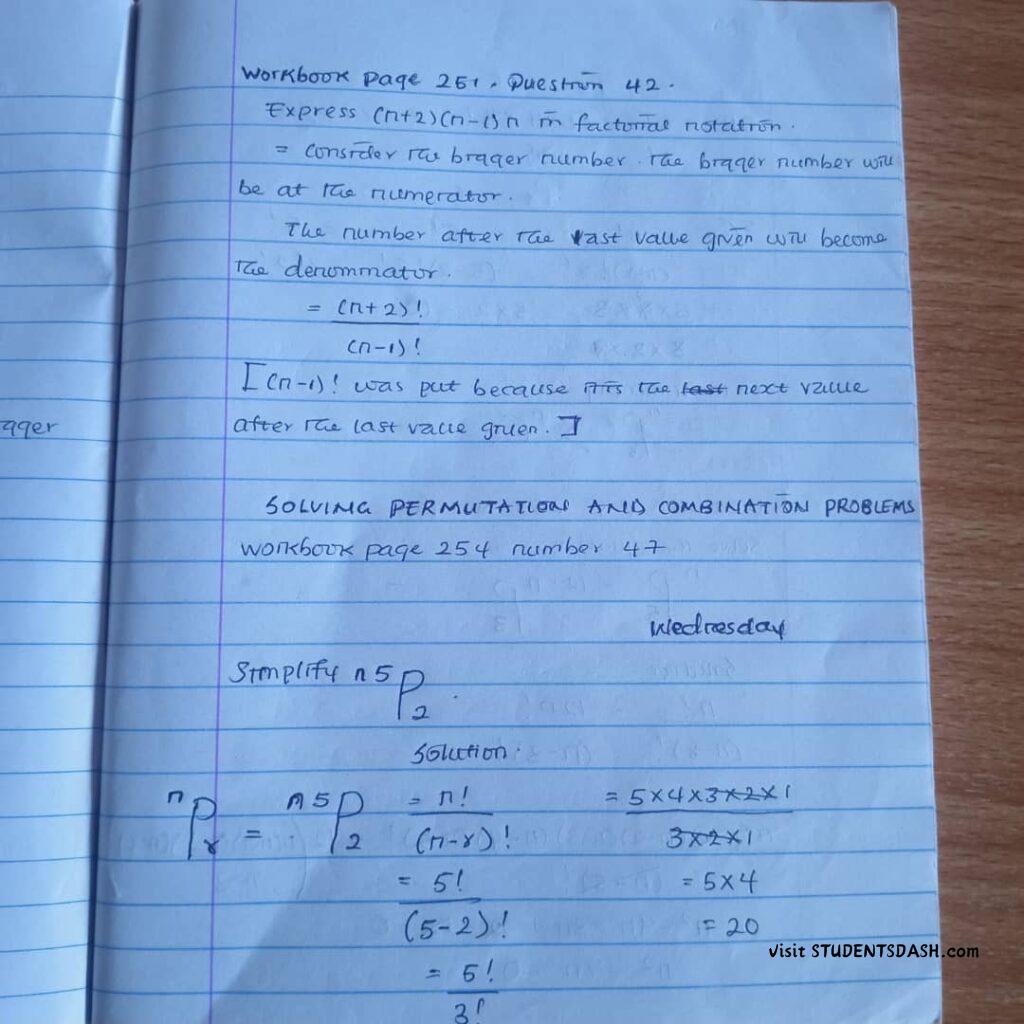 Workbook page 251, Question 42.
Express (n+2)(n-1)n in factorial notation.
= Consider the bigger number. The bigger number will
be at the numerator.
The number after the last value given will become
the denominator.
= (n+2)!
(n-1)!
[(n-1)! was put because it is the last next value
after the last value given.]
gger
SOLVING PERMUTATION AND COMBINATION PROBLEMS
Workbook page 254 number 47
Wednesday
Simplify n5P2.
Solution.
nPr = n5P2 = n! = 5×4×3×2×1
(n-r)! 3×2×1
= 5! = 5×4
(5-2)! = 20
visit STUDENTSDASH.com
= 5!
3!